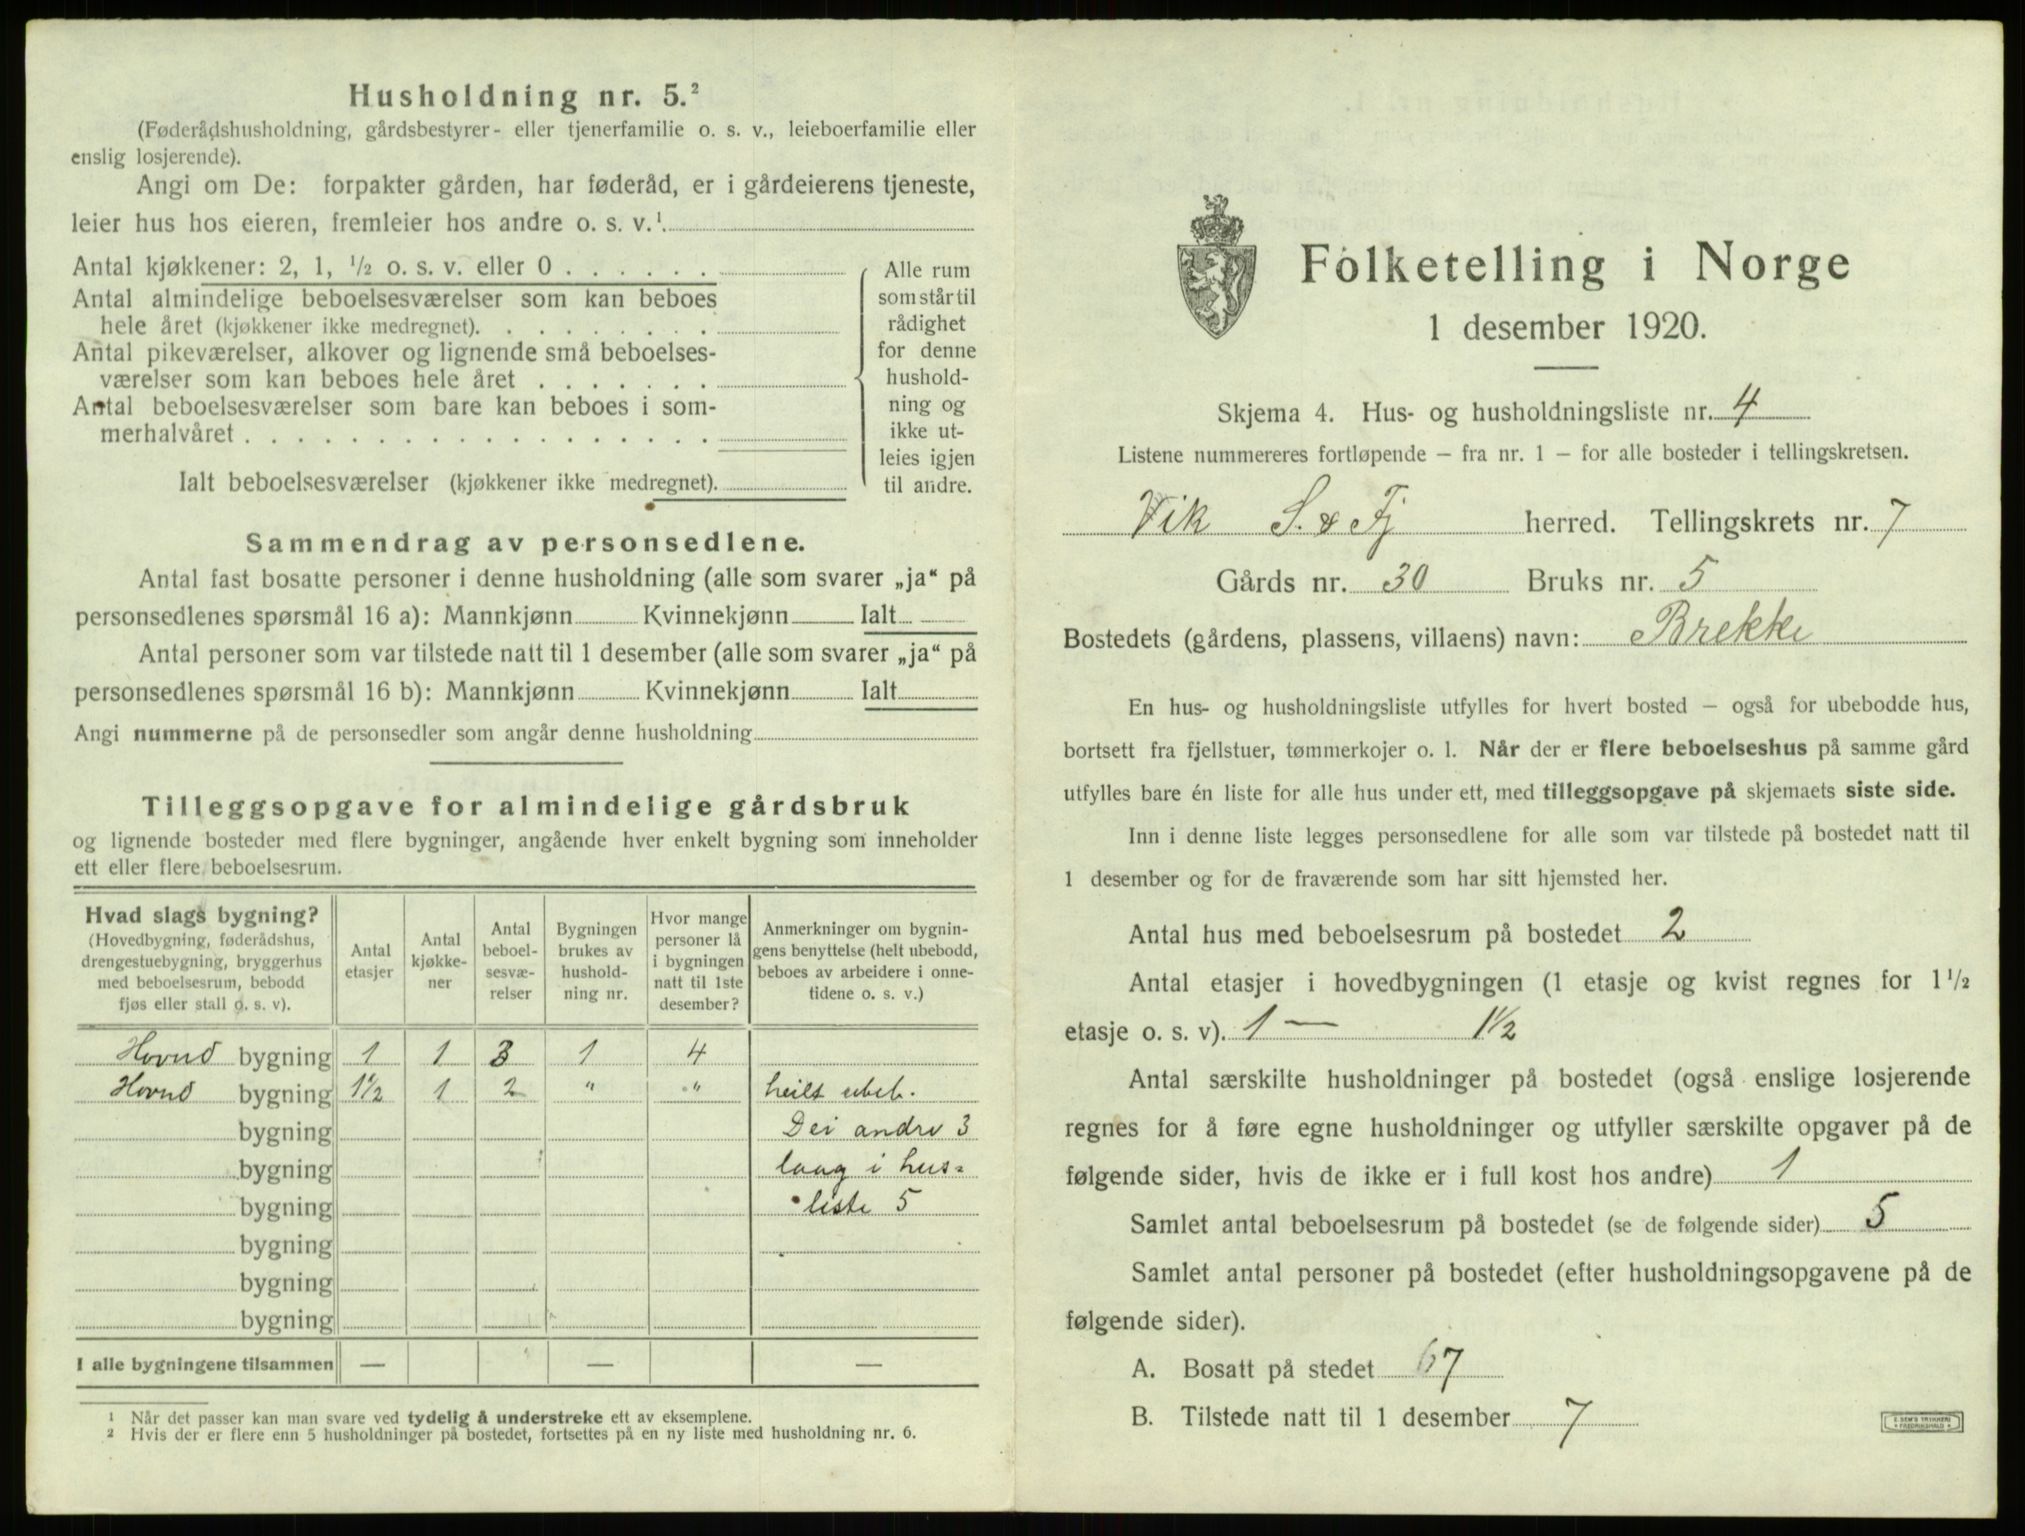 Husholdning nr. 5.²
(Føderådshusholdning, gårdsbestyrer- eller tjenerfamilie o. s. v., leieboerfamilie eller
enslig losjerende).
Angi om De: forpakter gården, har føderåd, er i gårdeierens tjeneste,
leier hus hos eieren, fremleier hos andre o. s. v.¹
Antal kjøkkener: 2, 1, ½ o. s. v. eller 0 . . . . . .
Antal almindelige beboelsesværelser som kan beboes
hele året (kjøkkener ikke medregnet). . . . . . . . .
Antal pikeværelser, alkover og lignende små beboelses-
værelser som kan beboes hele året . . . . . . .
Antal beboelsesværelser som bare kan beboes i som-
merhalvåret . . . . . . . . . . . . . . . . . .
Ialt beboelsesværelser (kjøkkener ikke medregnet).
Alle rum
som står til
rådighet
for denne
hushold-
ning og
ikke ut-
leies igjen
til andre.
Sammendrag av personsedlene.
Antal fast bosatte personer i denne husholdning (alle som svarer „ja“ på
personsedlenes spørsmål 16 a): Mannkjønn Kvinnekjønn Ialt
Antal personer som var tilstede natt til 1 desember (alle som svarer „ja“ på
personsedlenes spørsmål 16 b): Mannkjønn Kvinnekjønn Ialt
Angi nummerne på de personsedler som angår denne husholdning
Tilleggsopgave for almindelige gårdsbruk
og lignende bosteder med flere bygninger, angående hver enkelt bygning som inneholder
ett eller flere beboelsesrum.
Hvad slags bygning?
(Hovedbygning, føderådshus,
drengestuebygning, bryggerhus
med beboelsesrum, bebodd
fjøs eller stall o. s. v).
Antal
etasjer
Antal
kjøkke-
ner
Antal
beboel-
sesvæ-
relser
Bygningen
brukes av
hushold-
ning nr.
Hvor mange
personer lå
i bygningen
natt til 1ste
desember?
Anmerkninger om bygnin-
gens benyttelse (helt ubebodd,
beboes av arbeidere i onne-
tidene o. s. v.)
Hovud bygning 1 1 3 1 4
Hovud bygning 1½ 1 2 " " heilt ubeb.
bygning Dei andre 3
bygning laag i hus-
bygning liste 5
bygning
bygning
bygning
I alle bygningene tilsammen — — —
¹ Når det passer kan man svare ved tydelig å understreke ett av eksemplene.
² Hvis der er flere enn 5 husholdninger på bostedet, fortsettes på en ny liste med husholdning nr. 6.
Folketelling i Norge
1 desember 1920.
Skjema 4. Hus- og husholdningsliste nr. 4
Listene nummereres fortløpende — fra nr. 1 — for alle bosteder i tellingskretsen.
Vik S. & Fj herred. Tellingskrets nr. 7
Gårds nr. 30 Bruks nr. 5
Bostedets (gårdens, plassens, villaens) navn: Brekke
En hus- og husholdningsliste utfylles for hvert bosted — også for ubebodde hus,
bortsett fra fjellstuer, tømmerkojer o. l. Når der er flere beboelseshus på samme gård
utfylles bare én liste for alle hus under ett, med tilleggsopgave på skjemaets siste side.
Inn i denne liste legges personsedlene for alle som var tilstede på bostedet natt til
1 desember og for de fraværende som har sitt hjemsted her.
Antal hus med beboelsesrum på bostedet 2
Antal etasjer i hovedbygningen (1 etasje og kvist regnes for 1½
etasje o. s. v). 1 — 1½
Antal særskilte husholdninger på bostedet (også enslige losjerende
regnes for å føre egne husholdninger og utfyller særskilte opgaver på de
følgende sider, hvis de ikke er i full kost hos andre) 1
Samlet antal beboelsesrum på bostedet (se de følgende sider) 5
Samlet antal personer på bostedet (efter husholdningsopgavene på de
følgende sider).
A. Bosatt på stedet 67
B. Tilstede natt til 1 desember 7
E. SEM'S TRYKKERI
FREDRIKSHALD